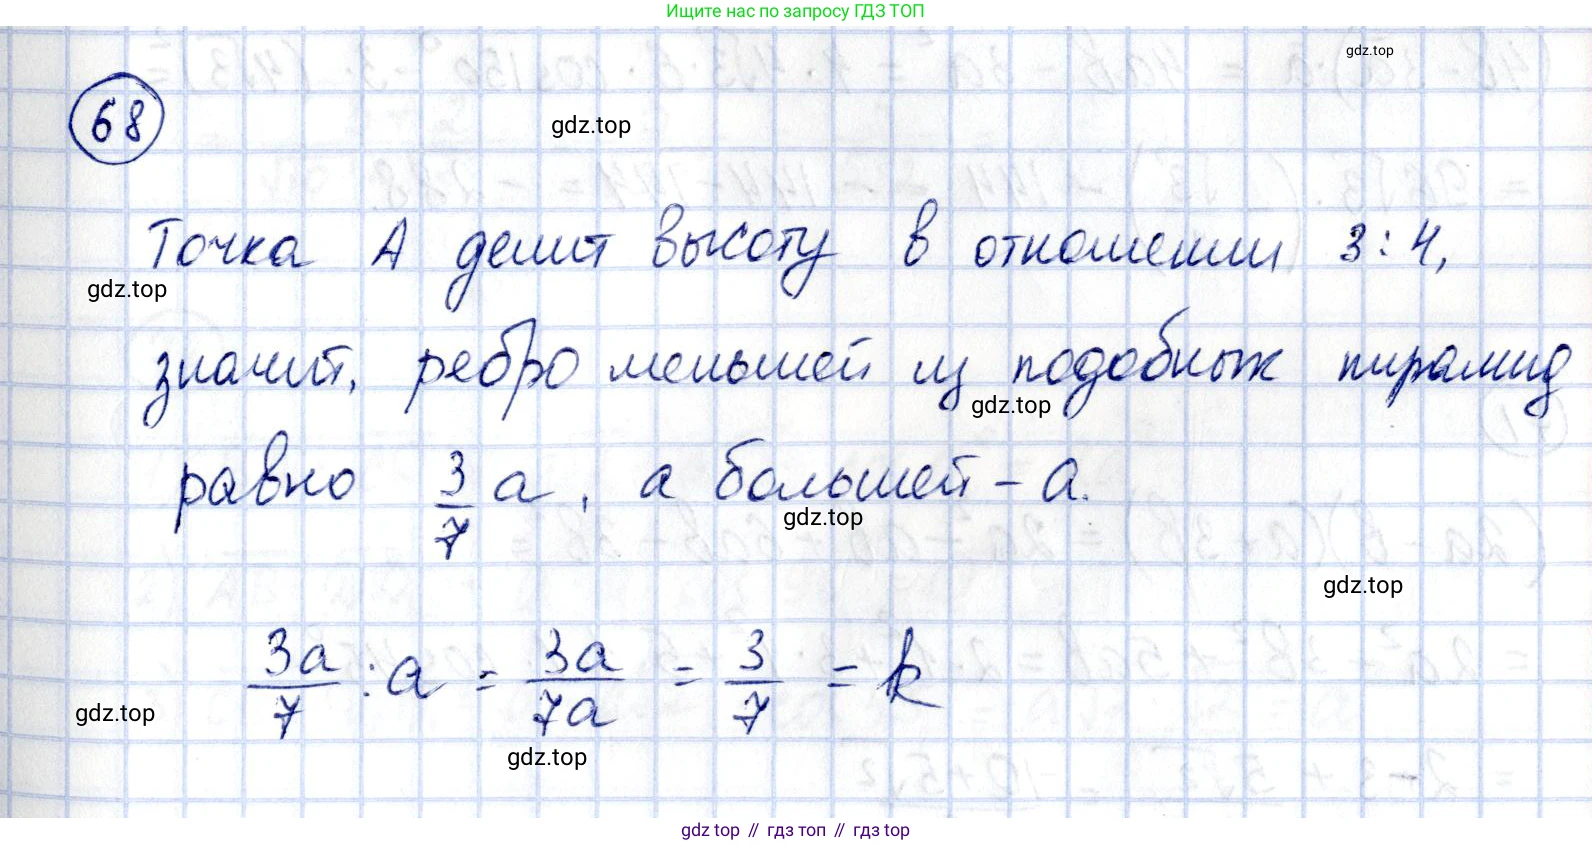 Ищите нас по запросу ГДЗ ТОП
gdz.top
68
gdz.top
Точка А делит высоту в отношении 3:4,
gdz.top
значит, ребро меньшей из подобных пирамид
gdz.top
равно 3/7 a, а большей – a.
gdz.top
gdz.top
3a/7 : a = 3a/7a = 3/7 = k
gdz.top
gdz.top
gdz top // гдз топ // гдз top